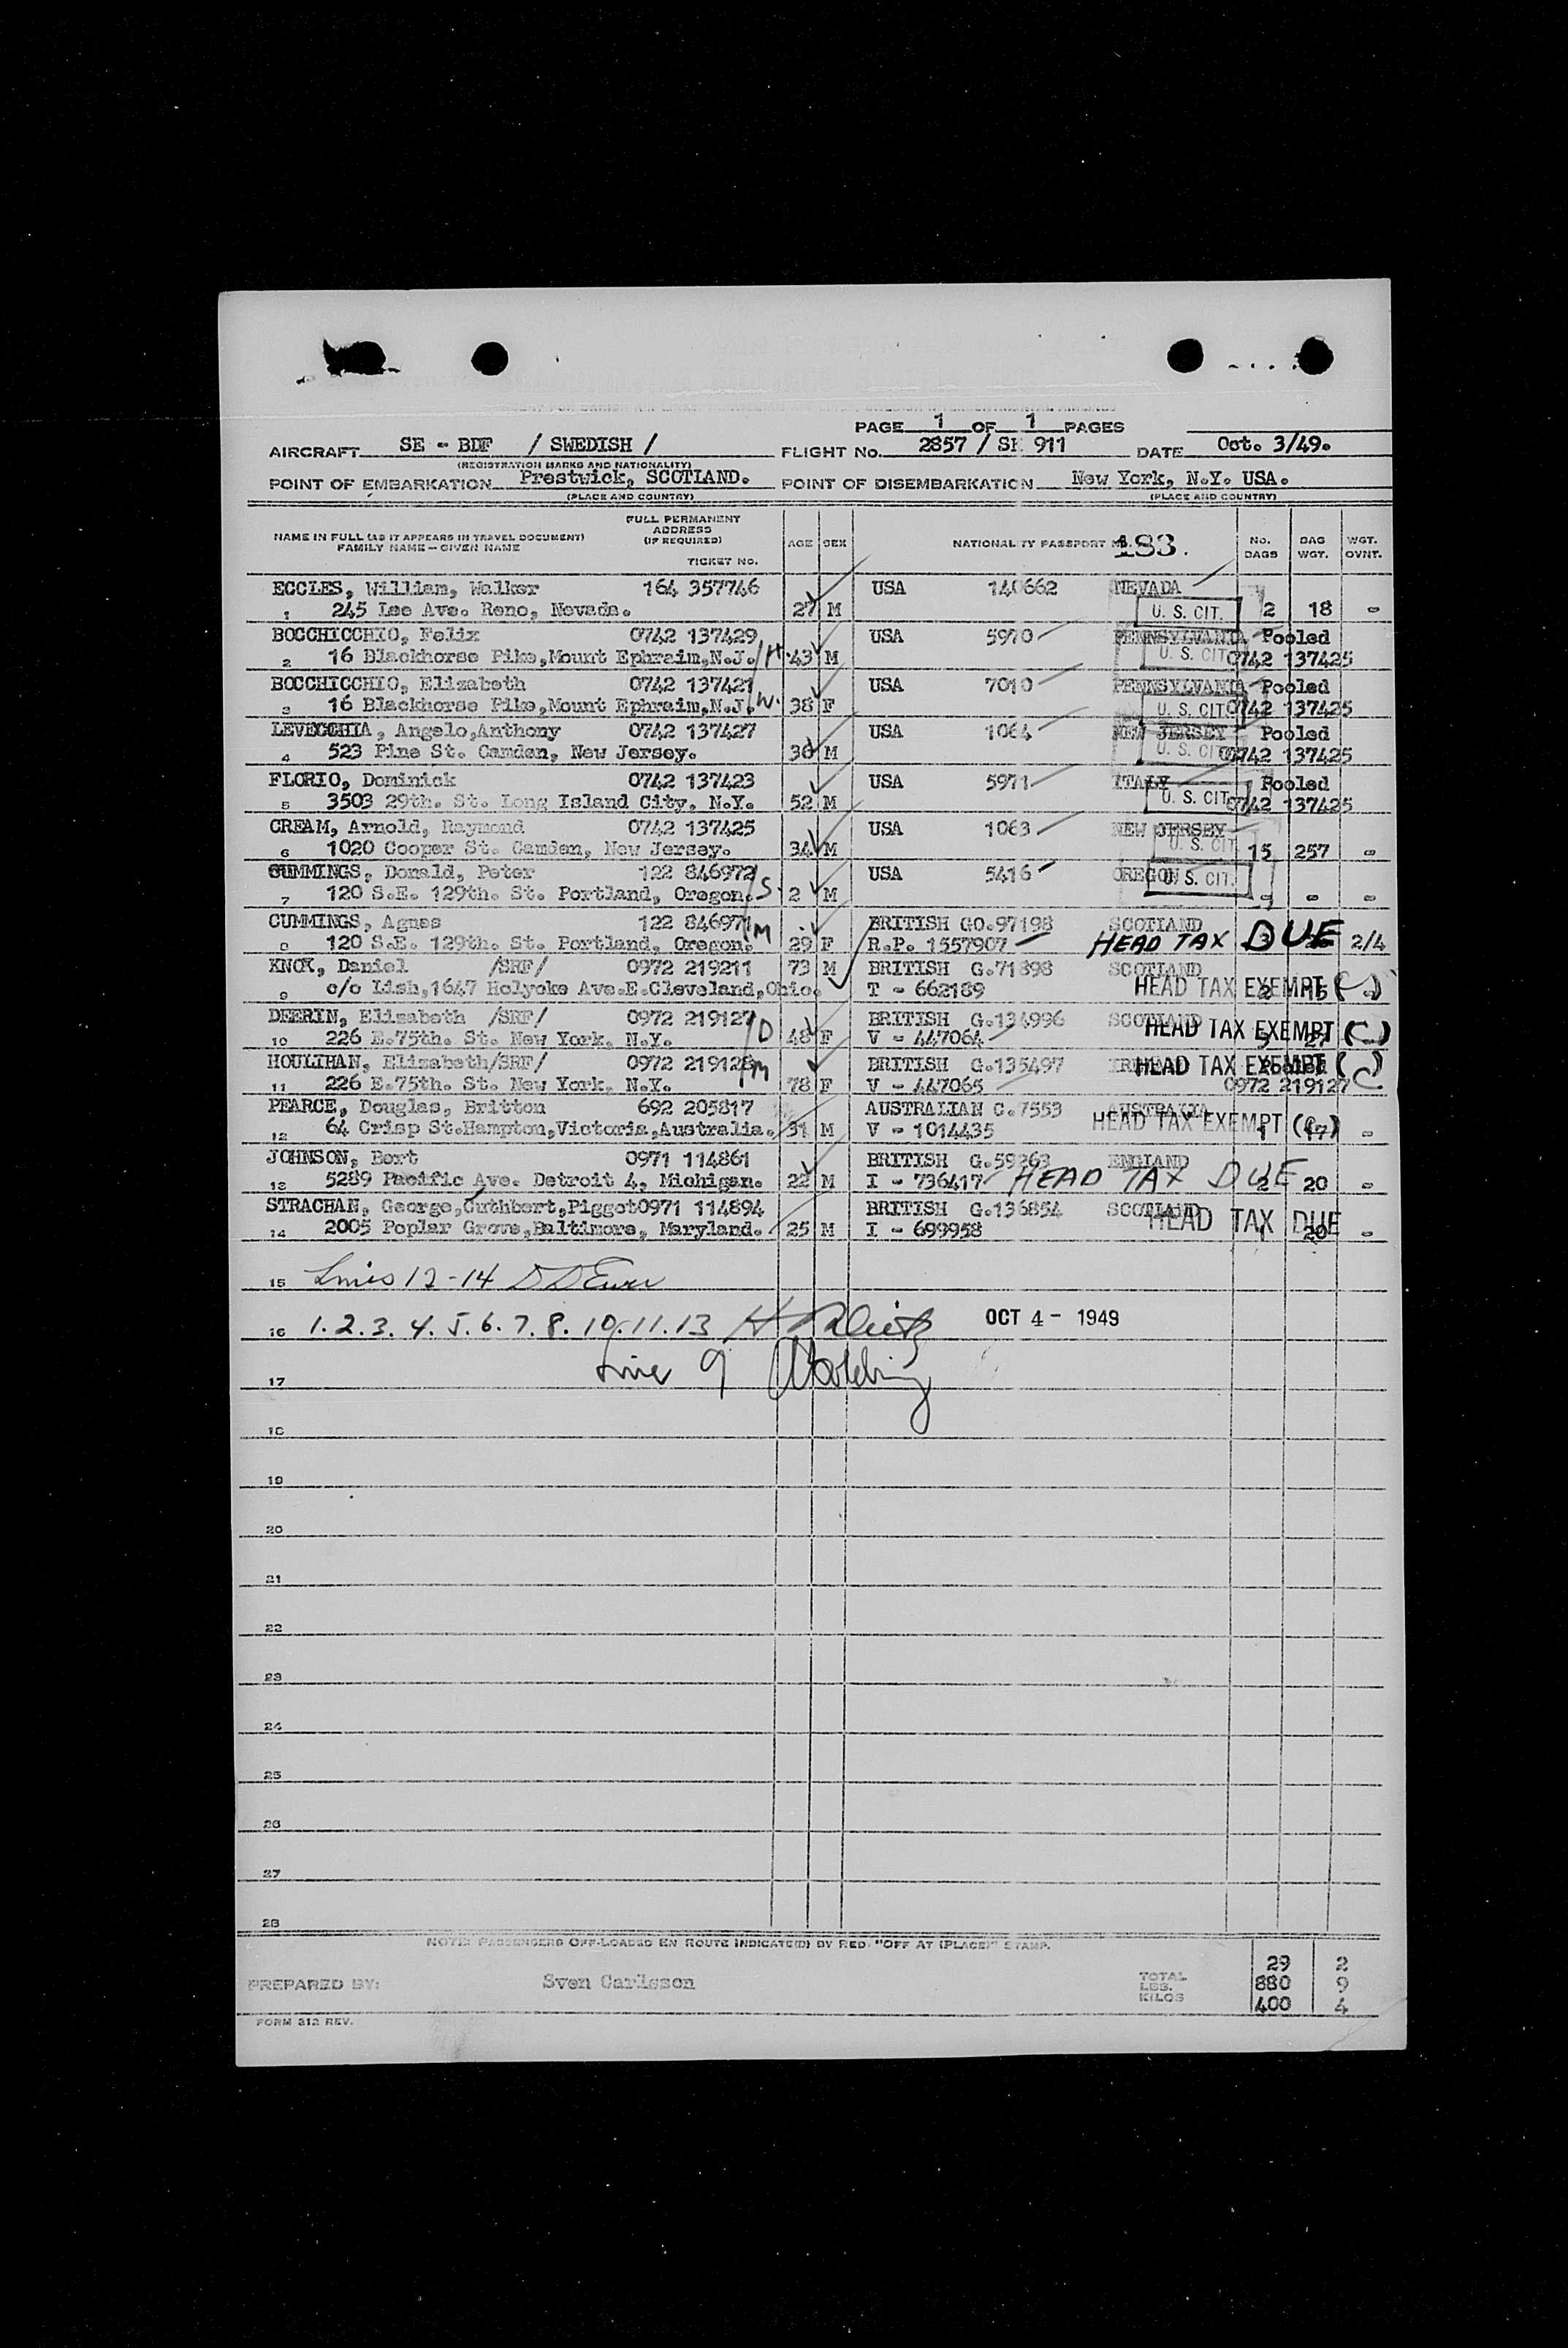 PAGE 1 OF 1 PAGES
AIRCRAFT SE - BDF / SWEDISH / FLIGHT No. 2857 / SK 911 DATE Oct. 3/49.
(REGISTRATION MARKS AND NATIONALITY)
POINT OF EMBARKATION Prestwick, SCOTLAND. POINT OF DISEMBARKATION New York, N.Y. USA.
(PLACE AND COUNTRY) (PLACE AND COUNTRY)
NAME IN FULL (AS IT APPEARS IN TRAVEL DOCUMENT) FAMILY NAME - GIVEN NAME FULL PERMANENT ADDRESS (IF REQUIRED) TICKET NO. AGE SEX NATIONALITY PASSPORT No. 183. NO. BAGS BAG WGT. WGT. OVNT.
ECCLES, William, Walker 164 357746 USA 140662 NEVADA
1 245 Lee Ave. Reno, Nevada. 27 M U. S. CIT. 2 18 -
BOCCHICCHIO, Felix 0742 137429 USA 5970 PENNSYLVANIA Pooled
2 16 Blackhorse Pike,Mount Ephraim,N.J. /H. 43 M U. S. CIT 0742 137425
BOCCHICCHIO, Elizabeth 0742 137421 USA 7010 PENNSYLVANIA Pooled
3 16 Blackhorse Pike,Mount Ephraim,N.J. /W. 38 F U. S. CIT 0742 137425
LEVECCHIA, Angelo,Anthony 0742 137427 USA 1064 NEW JERSEY Pooled
4 523 Pine St. Camden, New Jersey. 36 M U. S. CIT 0742 137425
FLORIO, Dominick 0742 137423 USA 5971 ITALY Pooled
5 3503 29th. St. Long Island City, N.Y. 52 M U. S. CIT. 0742 137425
CREAM, Arnold, Raymond 0742 137425 USA 1063 NEW JERSEY
6 1020 Cooper St. Camden, New Jersey. 34 M U. S. CIT 15 257 -
CUMMINGS, Donald, Peter 122 846972 USA 5416 OREGON
7 120 S.E. 129th. St. Portland, Oregon. /S. 2 M U. S. CIT. - - -
CUMMINGS, Agnes 122 846971 BRITISH GO.97198 SCOTLAND
8 120 S.E. 129th. St. Portland, Oregon. /M 29 F R.P. 1557907 HEAD TAX DUE 2/4
KNOX, Daniel /SRF/ 0972 219211 73 M BRITISH G.71898 SCOTLAND
9 c/o Lish,1647 Holyoke Ave.E.Cleveland,Ohio. T - 662189 HEAD TAX EXEMPT 2 15
DEERIN, Elizabeth /SRF/ 0972 219127 /D BRITISH G.134996 SCOTLAND
10 226 E.75th. St. New York, N.Y. 48 F V - 447064 HEAD TAX EXEMPT 27
HOULIHAN, Elizabeth/SRF/ 0972 219128 /M BRITISH G.135497 HEAD TAX EXEMPT Pooled
11 226 E.75th. St. New York, N.Y. 78 F V - 447065 0972 219127
PEARCE, Douglas, Britton 692 205817 AUSTRALIAN C.7553 AUSTRALIA
12 64 Crisp St.Hampton,Victoria,Australia. 31 M V - 1014435 HEAD TAX EXEMPT 1 17 -
JOHNSON, Bert 0971 114861 BRITISH G.59263 ENGLAND
13 5289 Pacific Ave. Detroit 4, Michigan. 22 M I - 736417 HEAD TAX DUE 2 20 -
STRACHAN, George,Cuthbert,Piggot 0971 114894 BRITISH G.136854 SCOTLAND
14 2005 Poplar Grove,Baltimore, Maryland. 25 M I - 699958 HEAD TAX DUE 1 20 -
15 Lines 12-14
16 1. 2. 3. 4. 5. 6. 7. 8. 10. 11. 13 OCT 4 - 1949
Line 9
17
18
19
20
21
22
23
24
25
26
27
28
NOTE: PASSENGERS OFF-LOADED EN ROUTE INDICATE(D) BY RED "OFF AT (PLACE)" STAMP.
PREPARED BY: Sven Carlsson
TOTAL 29 2
LBS. 880 9
KILOS 400 4
FORM 812 REV.